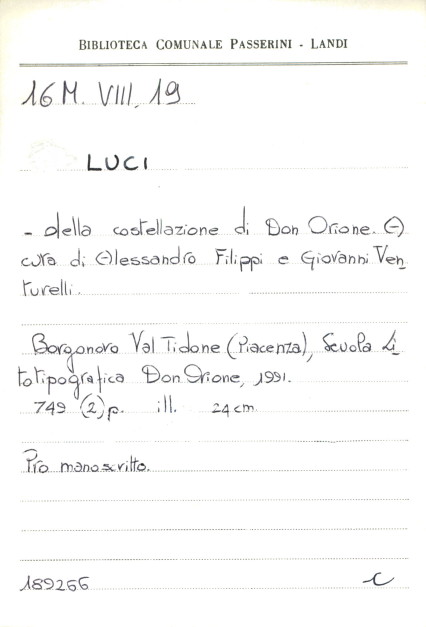 BIBLIOTECA COMUNALE PASSERINI - LANDI
16 M. VIII, 19
LUCI
- della costellazione di Don Orione. A
cura di Alessandro Filippi e Giovanni Ven
turelli.
Borgonovo Val Tidone (Piacenza), Scuola Li
totipografica Don Orione, 1991.
749 (2) p. ill. 24 cm.
Pro manoscritto.
189266
C